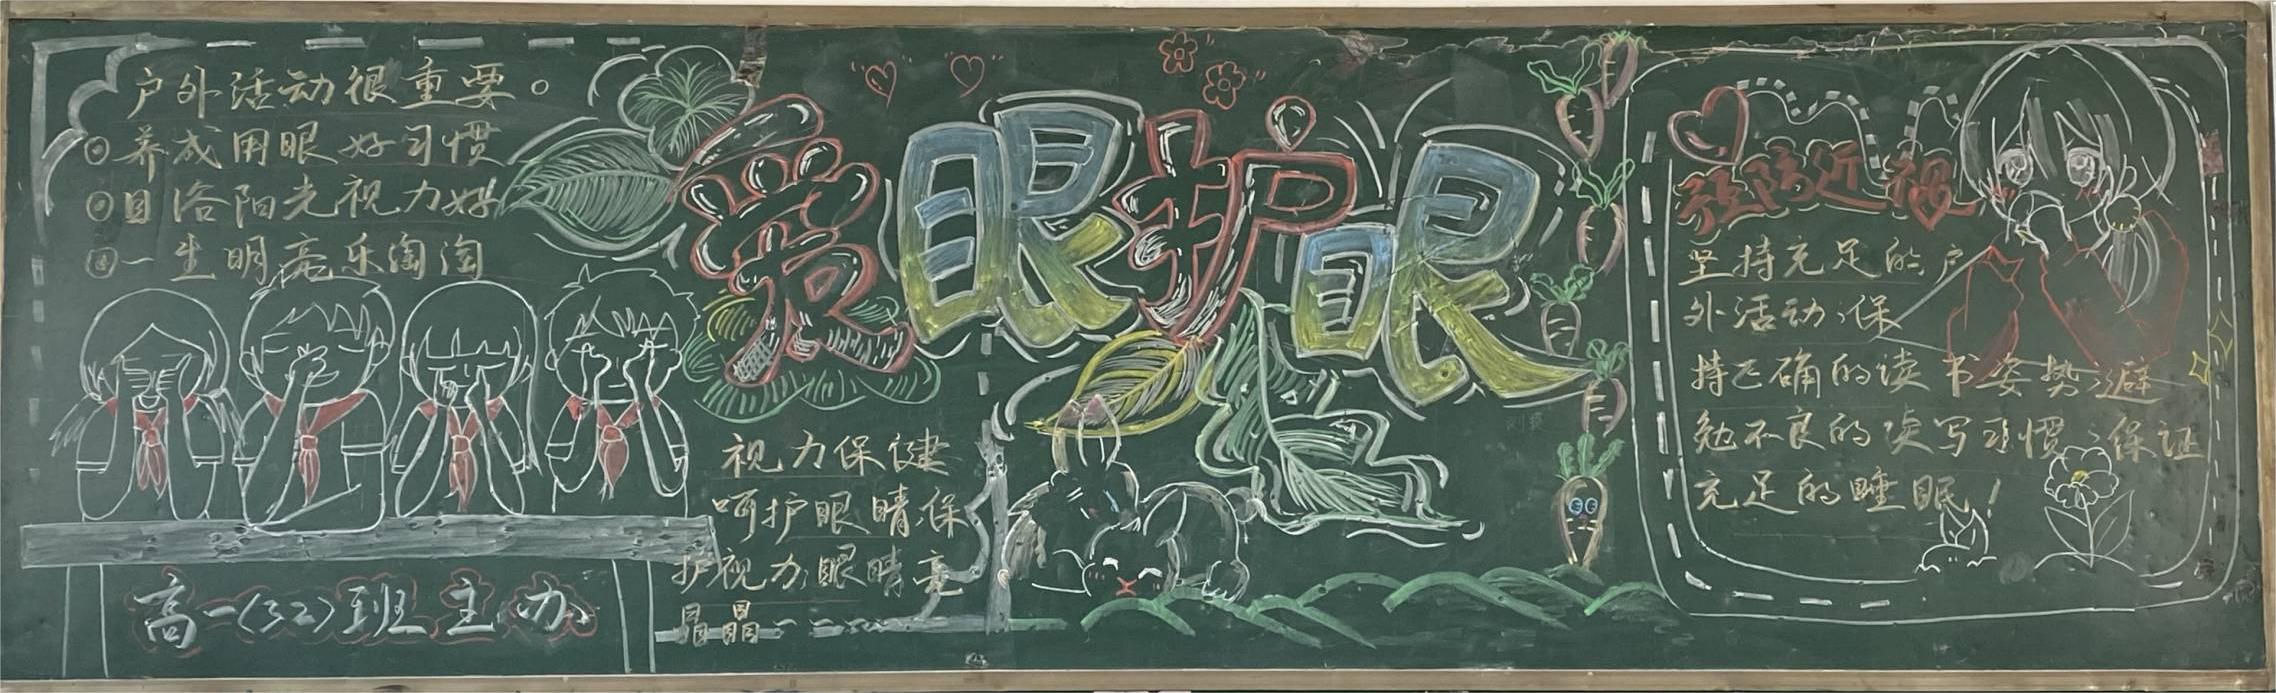 户外活动很重要。
养成用眼好习惯
目浴阳光视力好
一生明亮乐淘淘
高一(32)班主办
爱眼护眼
视力保健
呵护眼睛,保
护视力,眼睛亮
晶晶
预防近视
坚持充足的户
外活动,保
持正确的读书姿势,避
免不良的读写习惯,保证
充足的睡眠!